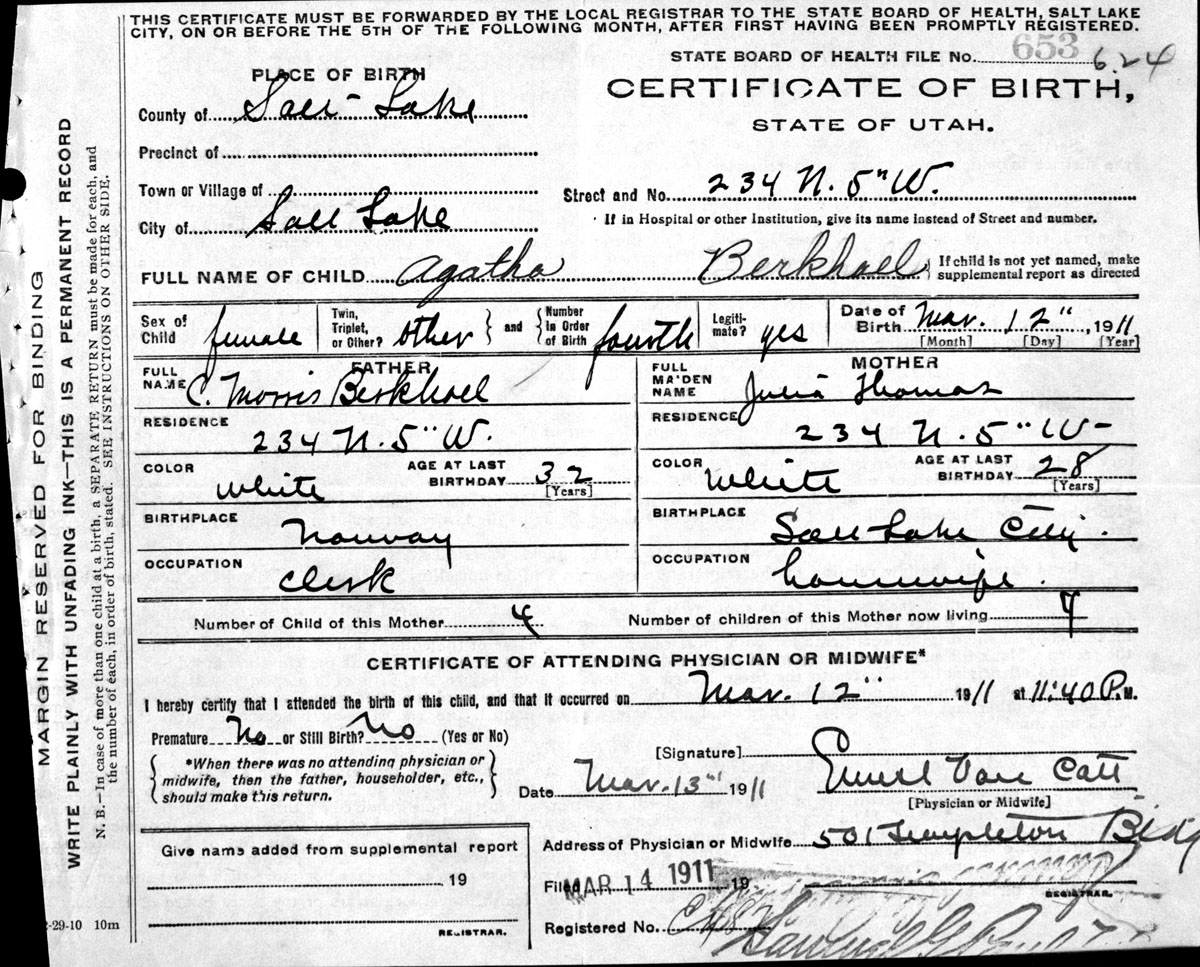 THIS CERTIFICATE MUST BE FORWARDED BY THE LOCAL REGISTRAR TO THE STATE BOARD OF HEALTH, SALT LAKE
CITY, ON OR BEFORE THE 5TH OF THE FOLLOWING MONTH, AFTER FIRST HAVING BEEN PROMPTLY REGISTERED.
STATE BOARD OF HEALTH FILE No. 653 624
PLACE OF BIRTH
CERTIFICATE OF BIRTH,
STATE OF UTAH.
County of Salt Lake
Precinct of
Town or Village of
Street and No. 234 N. 5" W.
City of Salt Lake
If in Hospital or other Institution, give its name instead of Street and number.
FULL NAME OF CHILD Agatha Berkhoel
If child is not yet named, make
supplemental report as directed
Sex of Child female
Twin, Triplet, or Other? other
and
Number in Order of Birth fourth
Legitimate? yes
Date of Birth Mar. 12", 1911
[Month] [Day] [Year]
FATHER
FULL NAME C. Morris Berkhoel
MOTHER
FULL MAIDEN NAME Julia Thomas
RESIDENCE 234 N. 5" W.
RESIDENCE 234 N. 5" W-
COLOR White
AGE AT LAST BIRTHDAY 32
[Years]
COLOR White
AGE AT LAST BIRTHDAY 28
[Years]
BIRTHPLACE Norway
BIRTHPLACE Salt Lake City.
OCCUPATION Clerk
OCCUPATION housewife.
Number of Child of this Mother 4
Number of children of this Mother now living 4
CERTIFICATE OF ATTENDING PHYSICIAN OR MIDWIFE*
I hereby certify that I attended the birth of this child, and that it occurred on Mar. 12" 1911 at 11:40 P.M.
Premature No or Still Birth? No (Yes or No)
*When there was no attending physician or
midwife, then the father, householder, etc.,
should make this return.
[Signature] Van Cott
Date Mar. 13" 1911
[Physician or Midwife]
Address of Physician or Midwife 501 Templeton Bldg
Give name added from supplemental report
19
REGISTRAR.
Filed MAR 14 1911 19
REGISTRAR.
Registered No.
-29-10 10m
MARGIN RESERVED FOR BINDING
WRITE PLAINLY WITH UNFADING INK—THIS IS A PERMANENT RECORD
N. B.—In case of more than one child at a birth, a SEPARATE RETURN must be made for each, and
the number of each, in order of birth, stated. SEE INSTRUCTIONS ON OTHER SIDE.